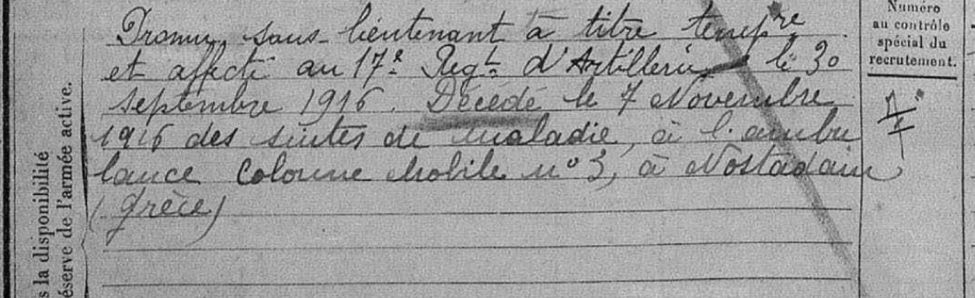 Promu sous-lieutenant à titre tempre
et affecté au 17e Regt d'Artillerie le 30
septembre 1916. Décédé le 7 Novembre
1916 des suites de maladie, à l'ambu
lance Colonne Mobile no 3, à
(Grèce)
Numéro
au contrôle
spécial du
recrutement.
s la disponibilité
éserve de l'armée active.